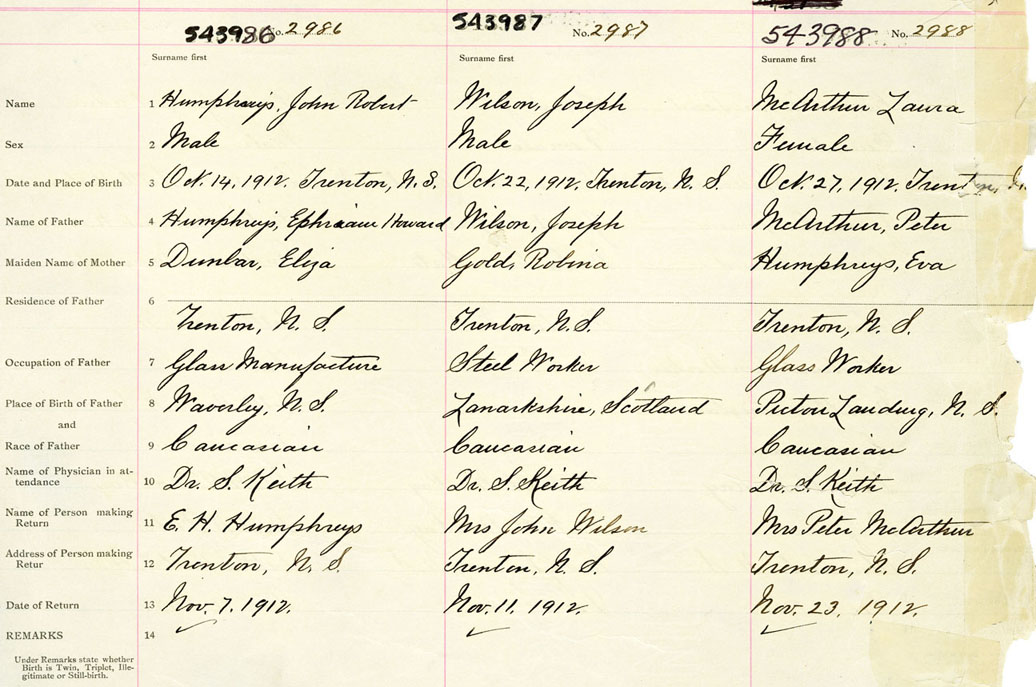 543986 No. 2986 543987 No. 2987 543988 No. 2988
Surname first Surname first Surname first
Name 1 Humphreys, John Robert Wilson, Joseph McArthur Laura
Sex 2 Male Male Female
Date and Place of Birth 3 Oct. 14, 1912. Trenton, N.S. Oct. 22, 1912, Trenton, N.S. Oct. 27, 1912, Trenton,
Name of Father 4 Humphreys, Ephraim Howard Wilson, Joseph McArthur, Peter
Maiden Name of Mother 5 Dunbar, Eliza Gold, Robina Humphreys, Eva
Residence of Father 6
Trenton, N.S. Trenton, N.S. Trenton, N.S.
Occupation of Father 7 Glass Manufacture Steel Worker Glass Worker
Place of Birth of Father 8 Waverley, N.S. Lanarkshire, Scotland Pictou Landing, N.S.
and
Race of Father 9 Caucasian Caucasian Caucasian
Name of Physician in at-
tendance 10 Dr. S. Keith Dr. S. Keith Dr. S. Keith
Name of Person making
Return 11 E. H. Humphreys Mrs John Wilson Mrs Peter McArthur
Address of Person making
Retur 12 Trenton, N.S. Trenton, N.S. Trenton, N.S.
Date of Return 13 Nov. 7. 1912. Nov. 11. 1912. Nov. 23. 1912.
REMARKS 14
Under Remarks state whether
Birth is Twin, Triplet, Ille-
gitimate or Still-birth.